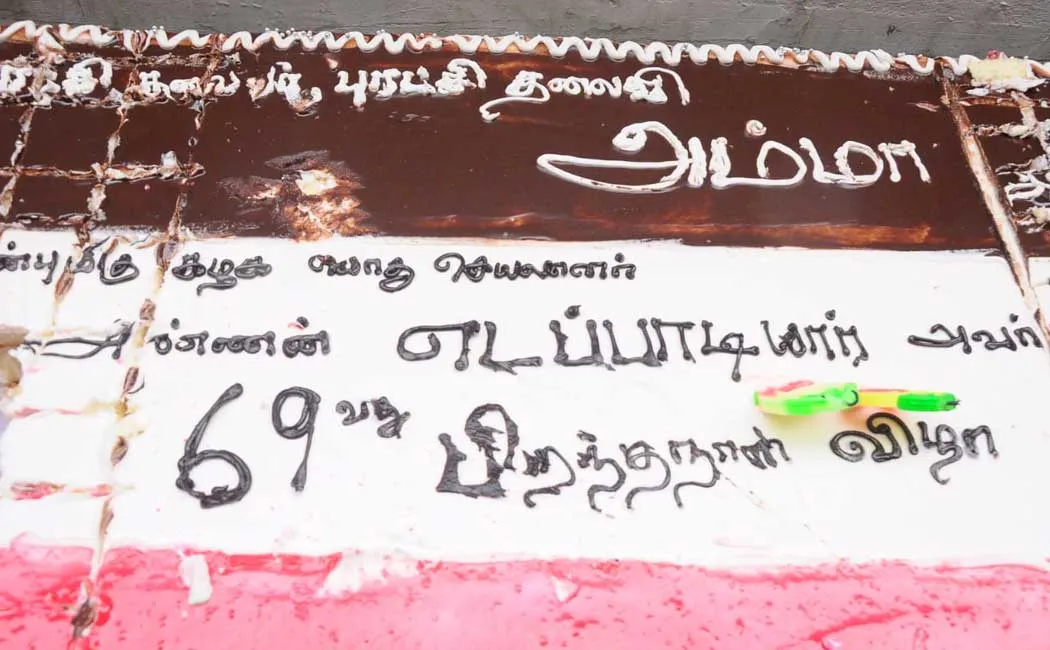 புரட்சி தலைவர், புரட்சி தலைவி
அம்மா
கழக பொது செயலாளர்
அண்ணன் எடப்பாடியார் அவர்
69 வது பிறந்தநாள் விழா